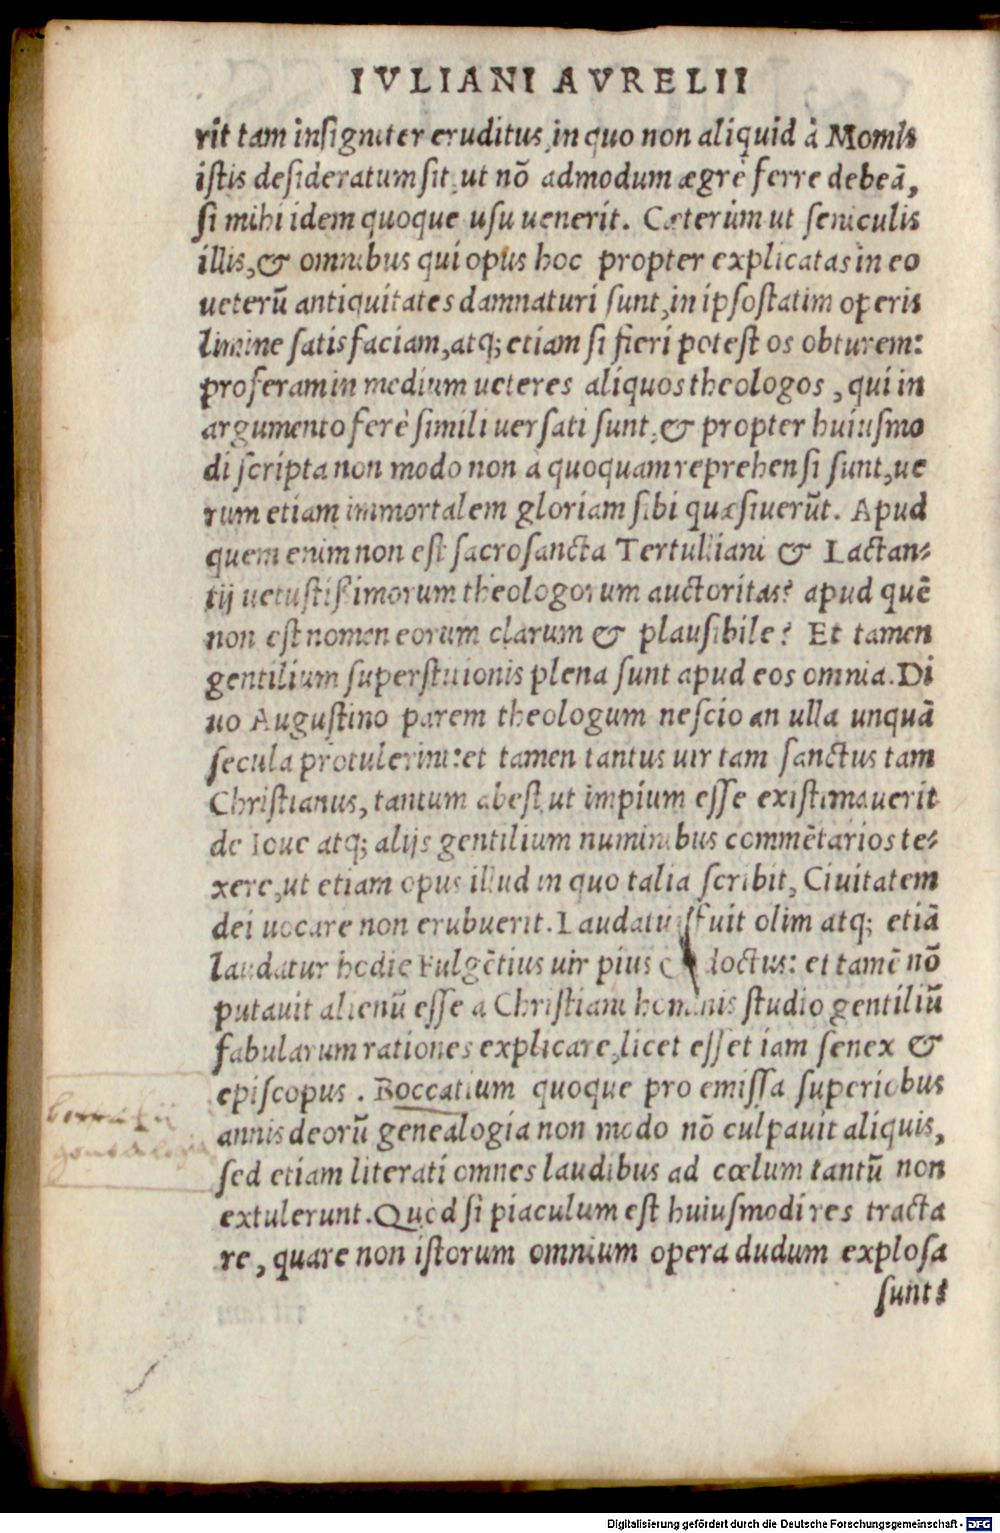 IVLIANI AVRELII
rit tam insigniter eruditus, in quo non aliquid à Momis
istis desideratum sit, ut nõ admodum ægrè ferre debeã,
si mihi idem quoque usu uenerit. Cæterùm ut seniculis
illis, & omnibus qui opus hoc propter explicatas in eo
ueterũ antiquitates damnaturi sunt, in ipso statim operis
limine satisfaciam, atq; etiam si fieri potest os obturem:
proferam in medium ueteres aliquos theologos, qui in
argumento ferè simili uersati sunt, & propter huiusmo
di scripta non modo non à quoquam reprehensi sunt, ue
rum etiam immortalem gloriam sibi quæsiuerũt. Apud
quem enim non est sacrosancta Tertulliani & Lactan-
tij uetustissimorum theologorum auctoritas? apud quẽ
non est nomen eorum clarum & plausibile? Et tamen
gentilium superstitionis plena sunt apud eos omnia. Di
uo Augustino parem theologum nescio an ulla unquã
secula protulerint: et tamen tantus uir tam sanctus tam
Christianus, tantum abest ut impium esse existimauerit
de Ioue atq; alijs gentilium numinibus commẽtarios te-
xere, ut etiam opus illud in quo talia scribit, Ciuitatem
dei uocare non erubuerit. Laudatus fuit olim atq; etiã
laudatur hodie Fulgẽtius uir pius & doctus: et tamẽ nõ
putauit alienũ esse a Christiani hominis studio gentiliũ
fabularum rationes explicare, licet esset iam senex &
episcopus. Boccatium quoque pro emissa superiobus
annis deorũ genealogia non modo nõ culpauit aliquis,
sed etiam literati omnes laudibus ad cœlum tantũ non
extulerunt. Quod si piaculum est huiusmodi res tracta
re, quare non istorum omnium opera dudum explosa
sunt?
Digitalisierung gefördert durch die Deutsche Forschungsgemeinschaft - DFG